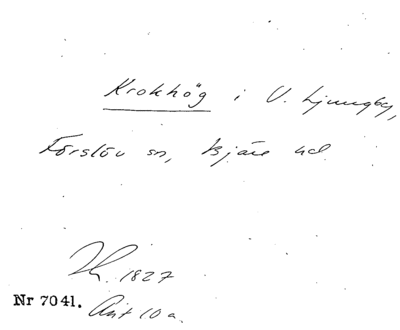 Krokhög i V. Ljungby,
Förslöv sn, Bjäre hd
1827
Nr 7041. Avt 10 a.